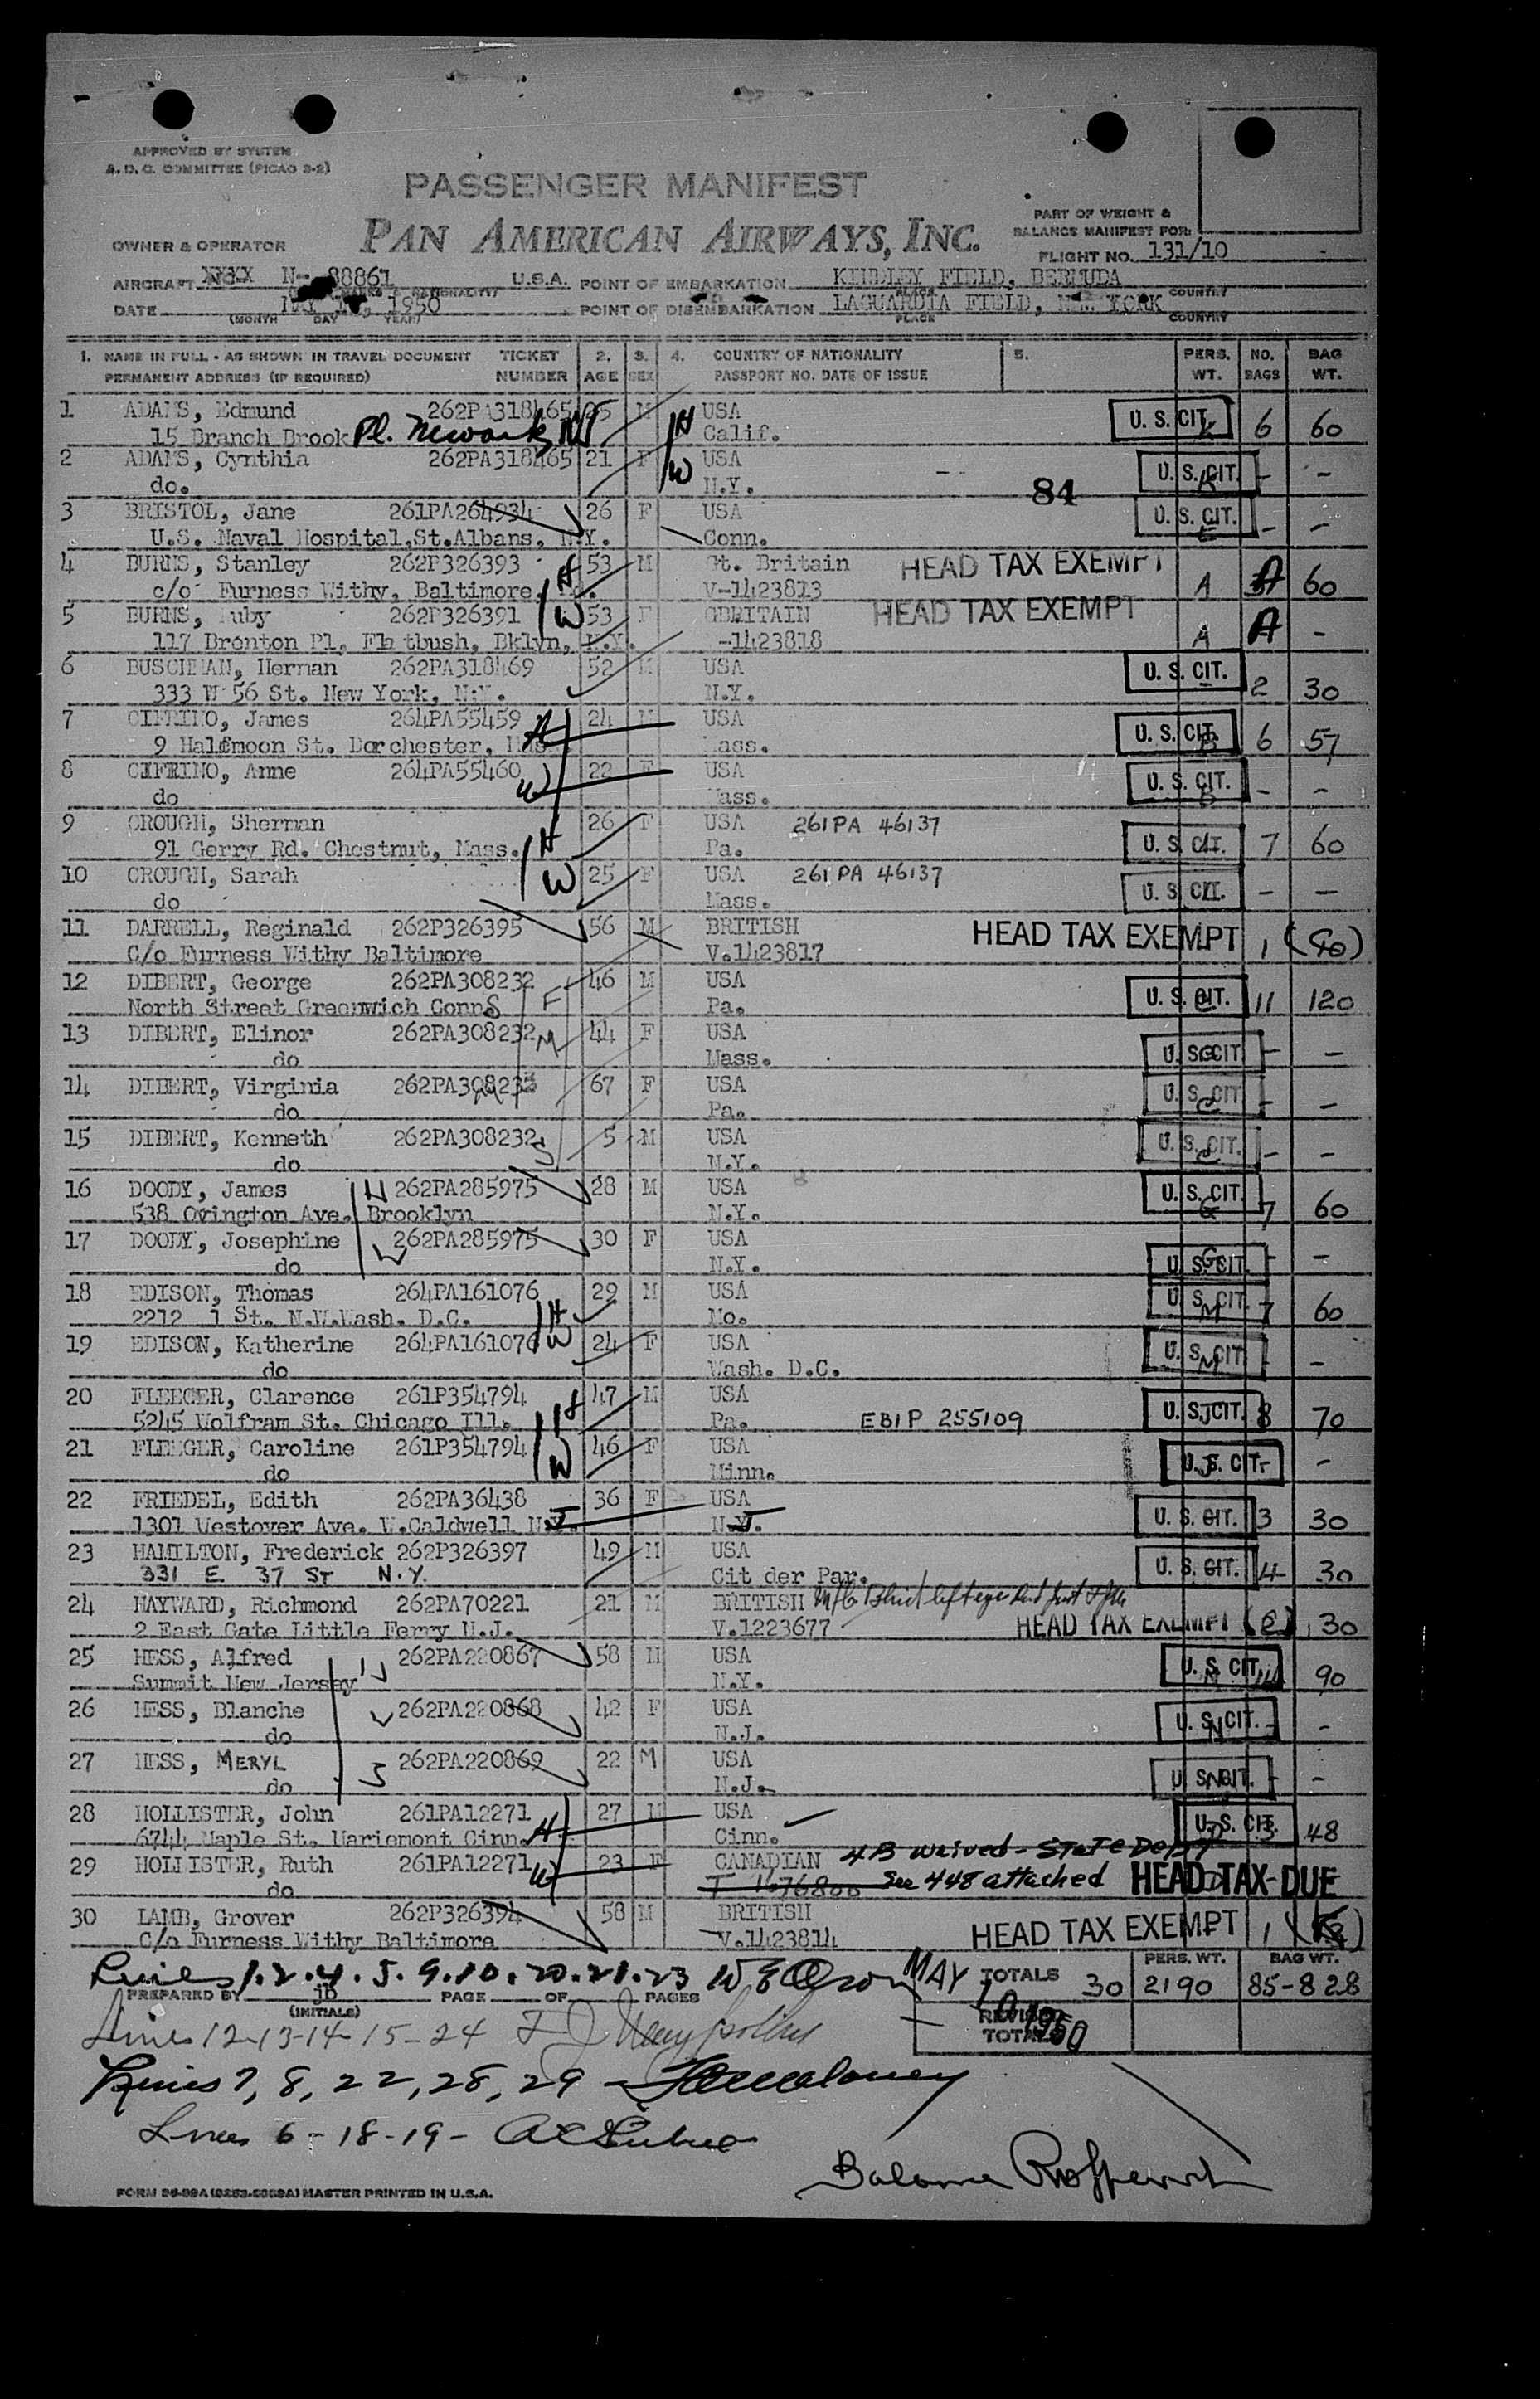 APPROVED BY SYSTEM
A. D. C. COMMITTEE (PICAO 2-2)
PASSENGER MANIFEST
PART OF WEIGHT &
BALANCE MANIFEST FOR:
OWNER & OPERATOR PAN AMERICAN AIRWAYS, INC. FLIGHT NO. 131/10
AIRCRAFT N- 88861 U.S.A. POINT OF EMBARKATION KINDLEY FIELD, BERMUDA
PLACE COUNTRY
DATE 1950 POINT OF DISEMBARKATION LAGUARDIA FIELD, NEW YORK
(MONTH DAY YEAR) PLACE COUNTRY
1. NAME IN FULL - AS SHOWN IN TRAVEL DOCUMENT TICKET 2. 3. 4. COUNTRY OF NATIONALITY 5. PERS. NO. BAG
PERMANENT ADDRESS (IF REQUIRED) NUMBER AGE SEX PASSPORT NO. DATE OF ISSUE WT. BAGS WT.
1 ADAMS, Edmund 262PA318465 25 M USA U. S. CIT. 6 60
15 Branch Brook Pl. Newark, NJ H Calif.
2 ADAMS, Cynthia 262PA318465 21 F W USA U. S. CIT. - -
do. N.Y. 84
3 BRISTOL, Jane 261PA264934 26 F USA U. S. CIT. - -
U.S. Naval Hospital, St.Albans, N.Y. Conn.
4 BURNS, Stanley 262P326393 H 53 M Gt. Britain HEAD TAX EXEMPT
c/o Furness Withy, Baltimore, V-1423813 A 60
5 BURNS, Ruby 262P326391 W 53 F GBRITAIN HEAD TAX EXEMPT
117 Brenton Pl, Flatbush, Bklyn, N.Y. -1423818 A A -
6 BUSCHMAN, Herman 262PA318469 52 M USA U. S. CIT.
333 W 56 St. New York, N.Y. N.Y. 2 30
7 CIFRINO, James 264PA55459 H 24 M USA U. S. CIT. 6 57
9 Halfmoon St. Dorchester, Mass. Mass.
8 CIFRINO, Anne 264PA55460 W 22 F USA U. S. CIT. - -
do Mass.
9 CROUGH, Sherman 26 F USA 261PA 46137
91 Gerry Rd. Chestnut, Mass. H Pa. U. S. CIT. 7 60
10 CROUGH, Sarah W 25 F USA 261PA 46137
do Mass. U. S. CIT. - -
11 DARRELL, Reginald 262P326395 56 M BRITISH HEAD TAX EXEMPT 1
C/o Furness Withy Baltimore V.1423817
12 DIBERT, George 262PA308232 F 46 M USA U. S. CIT. 11 120
North Street Greenwich Conn Pa.
13 DIBERT, Elinor 262PA308232 M 44 F USA U. S. CIT - -
do Mass.
14 DIBERT, Virginia 262PA308233 67 F USA U. S. CIT - -
do Pa.
15 DIBERT, Kenneth 262PA308232 S 5 M USA U. S. CIT. - -
do N.Y.
16 DOODY, James H 262PA285975 28 M USA U. S. CIT. 7 60
538 Ovington Ave. Brooklyn N.Y.
17 DOODY, Josephine W 262PA285975 30 F USA U. S. CIT. - -
do N.Y.
18 EDISON, Thomas 264PA161076 H 29 M USA U. S. CIT. 7 60
2212 1 St. N.W.Wash. D.C. Mo.
19 EDISON, Katherine 264PA161076 W 24 F USA U. S. CIT -
do Wash. D.C.
20 FLEEGER, Clarence 261P354794 47 M USA U. S. CIT. 8 70
5245 Wolfram St. Chicago Ill. H Pa. EBIP 255109
21 FLEEGER, Caroline 261P354794 W 46 F USA U. S. CIT - -
do Minn.
22 FRIEDEL, Edith 262PA36438 36 F USA U. S. CIT. 3 30
1301 Westover Ave. W.Caldwell N.J. N.J.
23 HAMILTON, Frederick 262P326397 49 M USA U. S. CIT. 4 30
331 E 37 ST N.Y. Cit der Par.
24 HAYWARD, Richmond 262PA70221 21 M BRITISH
2 East Gate Little Ferry N.J. V.1223677 HEAD TAX EXEMPT (2) 30
25 HESS, Alfred H 262PA220867 58 M USA U. S. CIT. 14 90
Summit New Jersey N.Y.
26 HESS, Blanche W 262PA220868 42 F USA U. S. CIT. - -
do N.J.
27 HESS, MERYL S 262PA220869 22 M USA U. S. CIT. - -
do N.J.
28 HOLLISTER, John 261PA12271 27 M USA U. S. CIT. 3 48
6744 Maple St. Mariemont Cinn. H Cinn.
29 HOLLISTER, Ruth 261PA12271 W 23 F CANADIAN 4B waived - State Dept
do See 448 attached HEAD TAX DUE
30 LAMB, Grover 262P326394 58 M BRITISH HEAD TAX EXEMPT 1
C/o Furness Withy Baltimore V.1423814
Lines 1.2.4.5.9.10.20.21.23 MAY 10 1950 TOTALS 30 PERS. WT. 2190 BAG WT. 85-828
PREPARED BY jb PAGE OF PAGES
(INITIALS) REVISED TOTALS
Lines 12-13-14-15-24
Lines 7, 8, 22, 28, 29
Lines 6-18-19-
Balance
FORM MASTER PRINTED IN U.S.A.